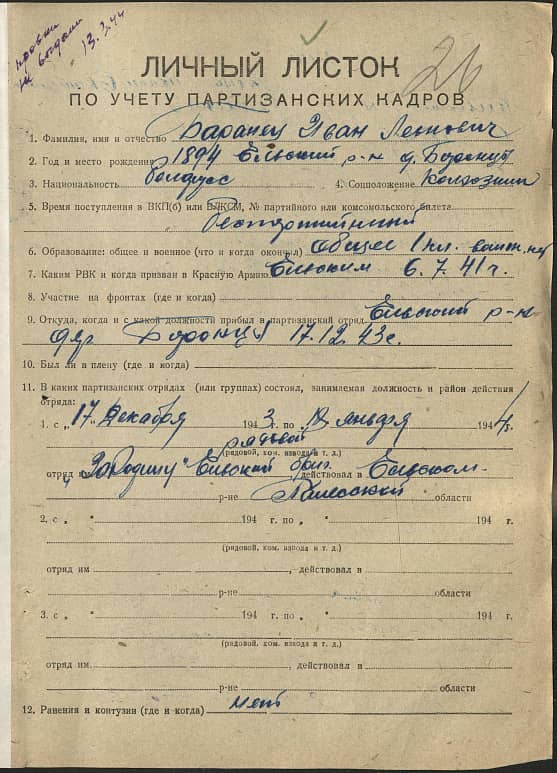 справки
не выдали
13.3.44
26
ЛИЧНЫЙ ЛИСТОК
ПО УЧЕТУ ПАРТИЗАНСКИХ КАДРОВ
1. Фамилия, имя и отчество Баранец Иван Леонович
2. Год и место рождения 1894 Ельский р-н д.
3. Национальность белорусс 4. Соцположение Колхозник
5. Время поступления в ВКП(б) или ВЛКСМ, № партийного или комсомольского билета
Беспартийный
6. Образование: общее и военное (что и когда окончил) общее 1 кл. воен. нет
7. Каким РВК и когда призван в Красную Армию Ельским 6.7.41 г.
8. Участие на фронтах (где и когда)
9. Откуда, когда и с какой должности прибыл в партизанский отряд Ельский р-н
дер. 17.12.43 г.
10. Был ли в плену (где и когда)
11. В каких партизанских отрядах (или группах) состоял, занимаемая должность и район действия
отряда:
1. с „17 " Декабря 1943 г. по „ " января 1944 г.
рядовой
(рядовой, ком. взвода и т. д.)
отряд им „За Родину" Ельский бриг. действовал в Ельском
р-не Полесской области
2. с „ " 194 г. по „ " 194 г.
(рядовой, ком. взвода и т. д.)
отряд им , действовал в
р-не области
3. с „ " 194 г. по „ " 194 г.
(рядовой, ком. взвода и т. д.)
отряд им , действовал в
р-не области
12. Ранения и контузии (где и когда) нет